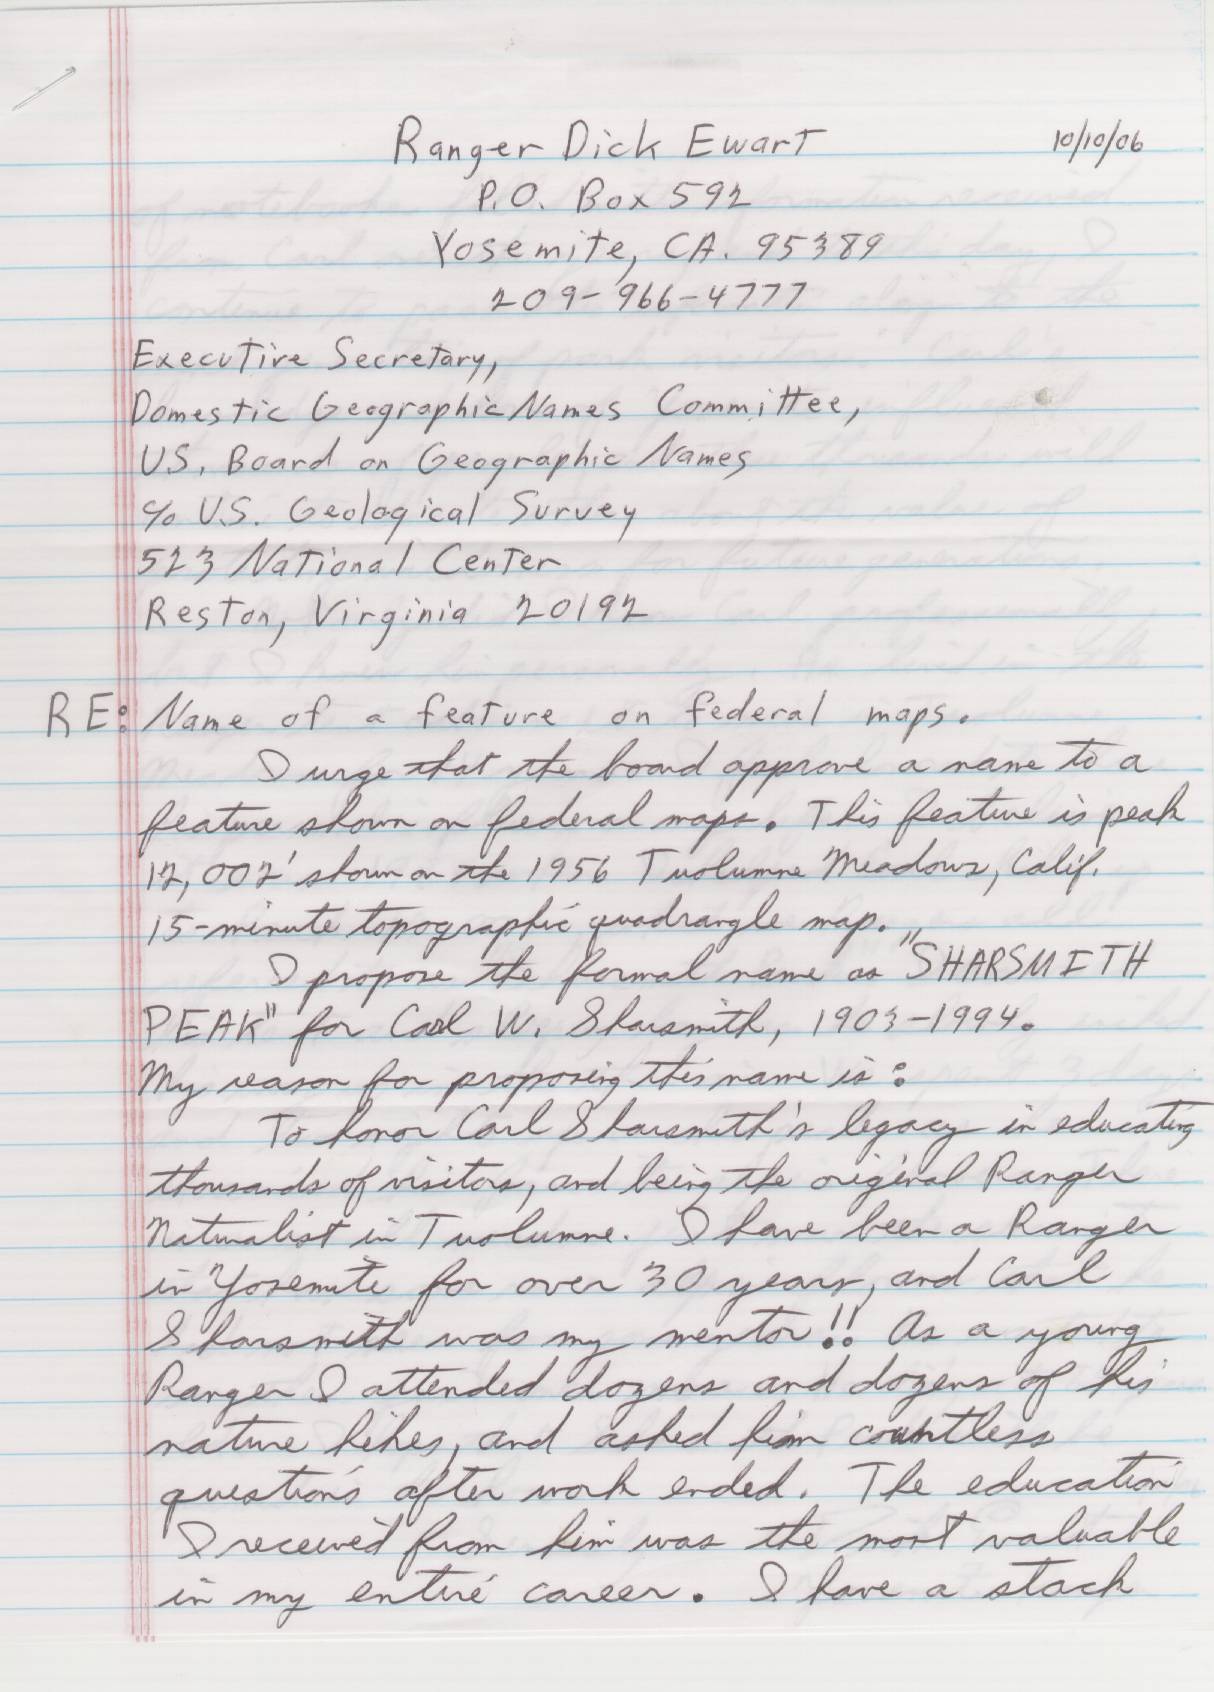 Ranger Dick Ewart 10/10/06
P.O. Box 592
Yosemite, CA. 95389
209-966-4777
Executive Secretary,
Domestic Geographic Names Committee,
U.S. Board on Geographic Names
c/o U.S. Geological Survey
523 National Center
Reston, Virginia 20192
RE: Name of a feature on federal maps.
I urge that the board approve a name to a
feature shown on federal maps. This feature is peak
12,002' shown on the 1956 Tuolumne Meadows, Calif.
15-minute topographic quadrangle map.
I propose the formal name as "SHARSMITH
PEAK" for Carl W. Sharsmith, 1903-1994.
My reason for proposing this name is:
To honor Carl Sharsmith's legacy in educating
thousands of visitors, and being the original Ranger
Naturalist in Tuolumne. I have been a Ranger
in Yosemite for over 30 years, and Carl
Sharsmith was my mentor!! As a young
Ranger I attended dozens and dozens of his
nature hikes, and asked him countless
questions after work ended. The education
I received from him was the most valuable
in my entire career. I have a stack